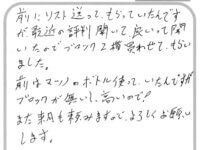 前にリスト送って、もらっていたんです
が最近の評判聞いて良いって聞
いたのでブロック2横買わせて、もらい
ました。
前はマツノのボトル使って、いたんで
ブロックが無いし、高いので!
また来月も頼みますので、よろしくお願い
します。